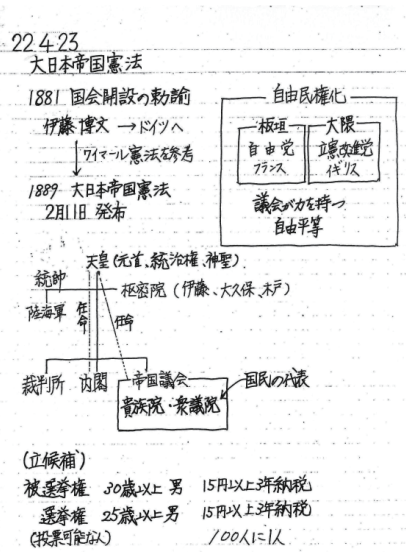 22.4.23
大日本帝国憲法
1881 国会開設の勅諭
伊藤博文 →ドイツへ
ワイマール憲法を参考
1889 大日本帝国憲法
2月11日 発布
自由民権化
板垣
自由党
フランス
大隈
立憲改進党
イギリス
議会が力を持つ
自由平等
天皇(元首、統治権、神聖)
統帥
陸海軍
任命
任命
枢密院(伊藤、大久保、木戸)
裁判所 内閣 帝国議会
貴族院・衆議院
国民の代表
(立候補)
被選挙権 30歳以上男 15円以上3年納税
選挙権 25歳以上男 15円以上3年納税
(投票可能な人) 100人に1人